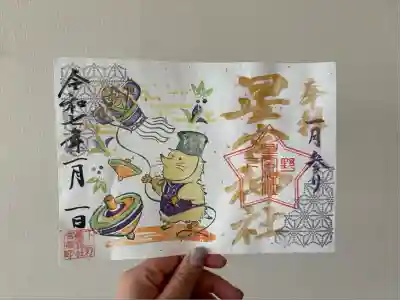 奉拝
一月参り
星宮神社
令和七年一月一日